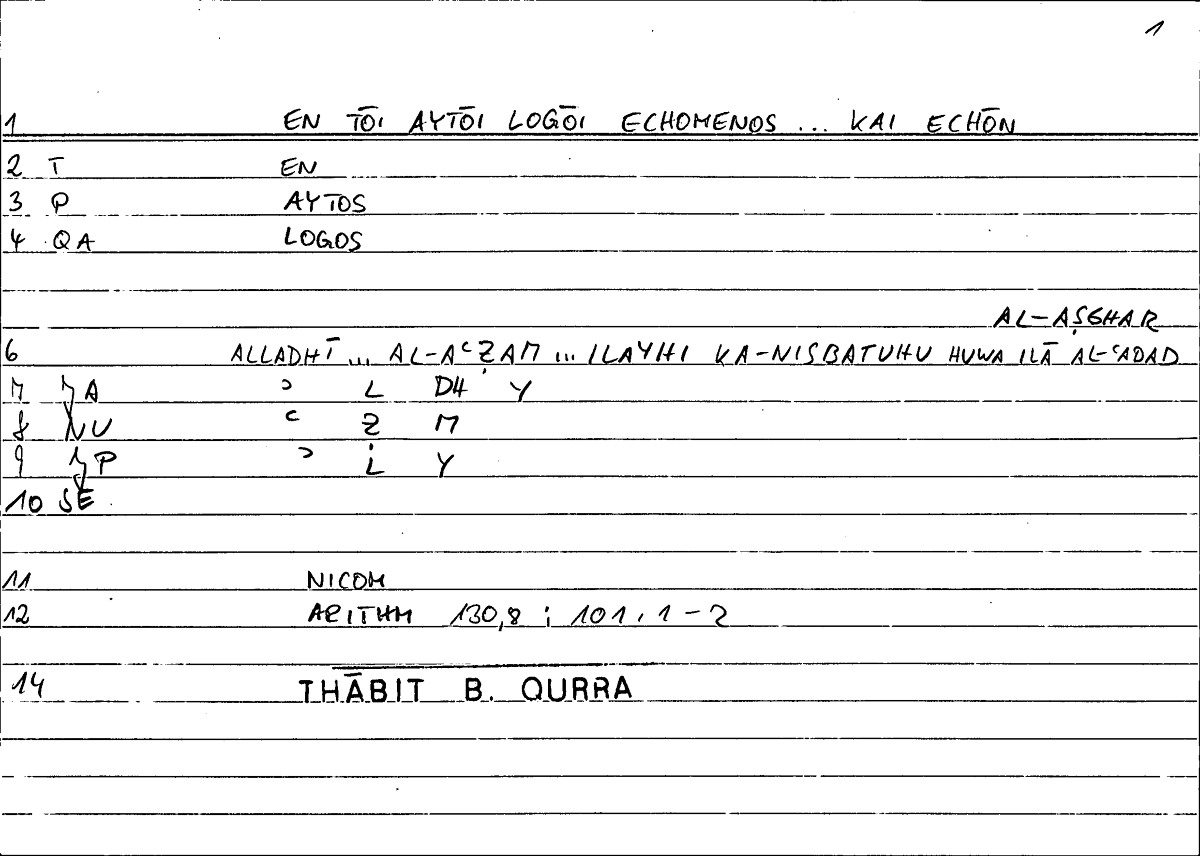 1
1 EN TŌI AYTŌI LOGŌI ECHOMENOS ... KAI ECHŌN
2 T EN
3 P AYTOS
4 QA LOGOS
AL-AṢGHAR
6 ALLADHĪ ... AL-AʿẒAM ... ILAYHI KA-NISBATUHU HUWA ILĀ AL-ʿADAD
7 JA ʾ L DH Y
8 NU ʿ Ẓ M
9 JP ʾ L Y
10 SE
11 NICOM
12 ARITHM 130,8 ; 101,1-2
14 THĀBIT B. QURRA